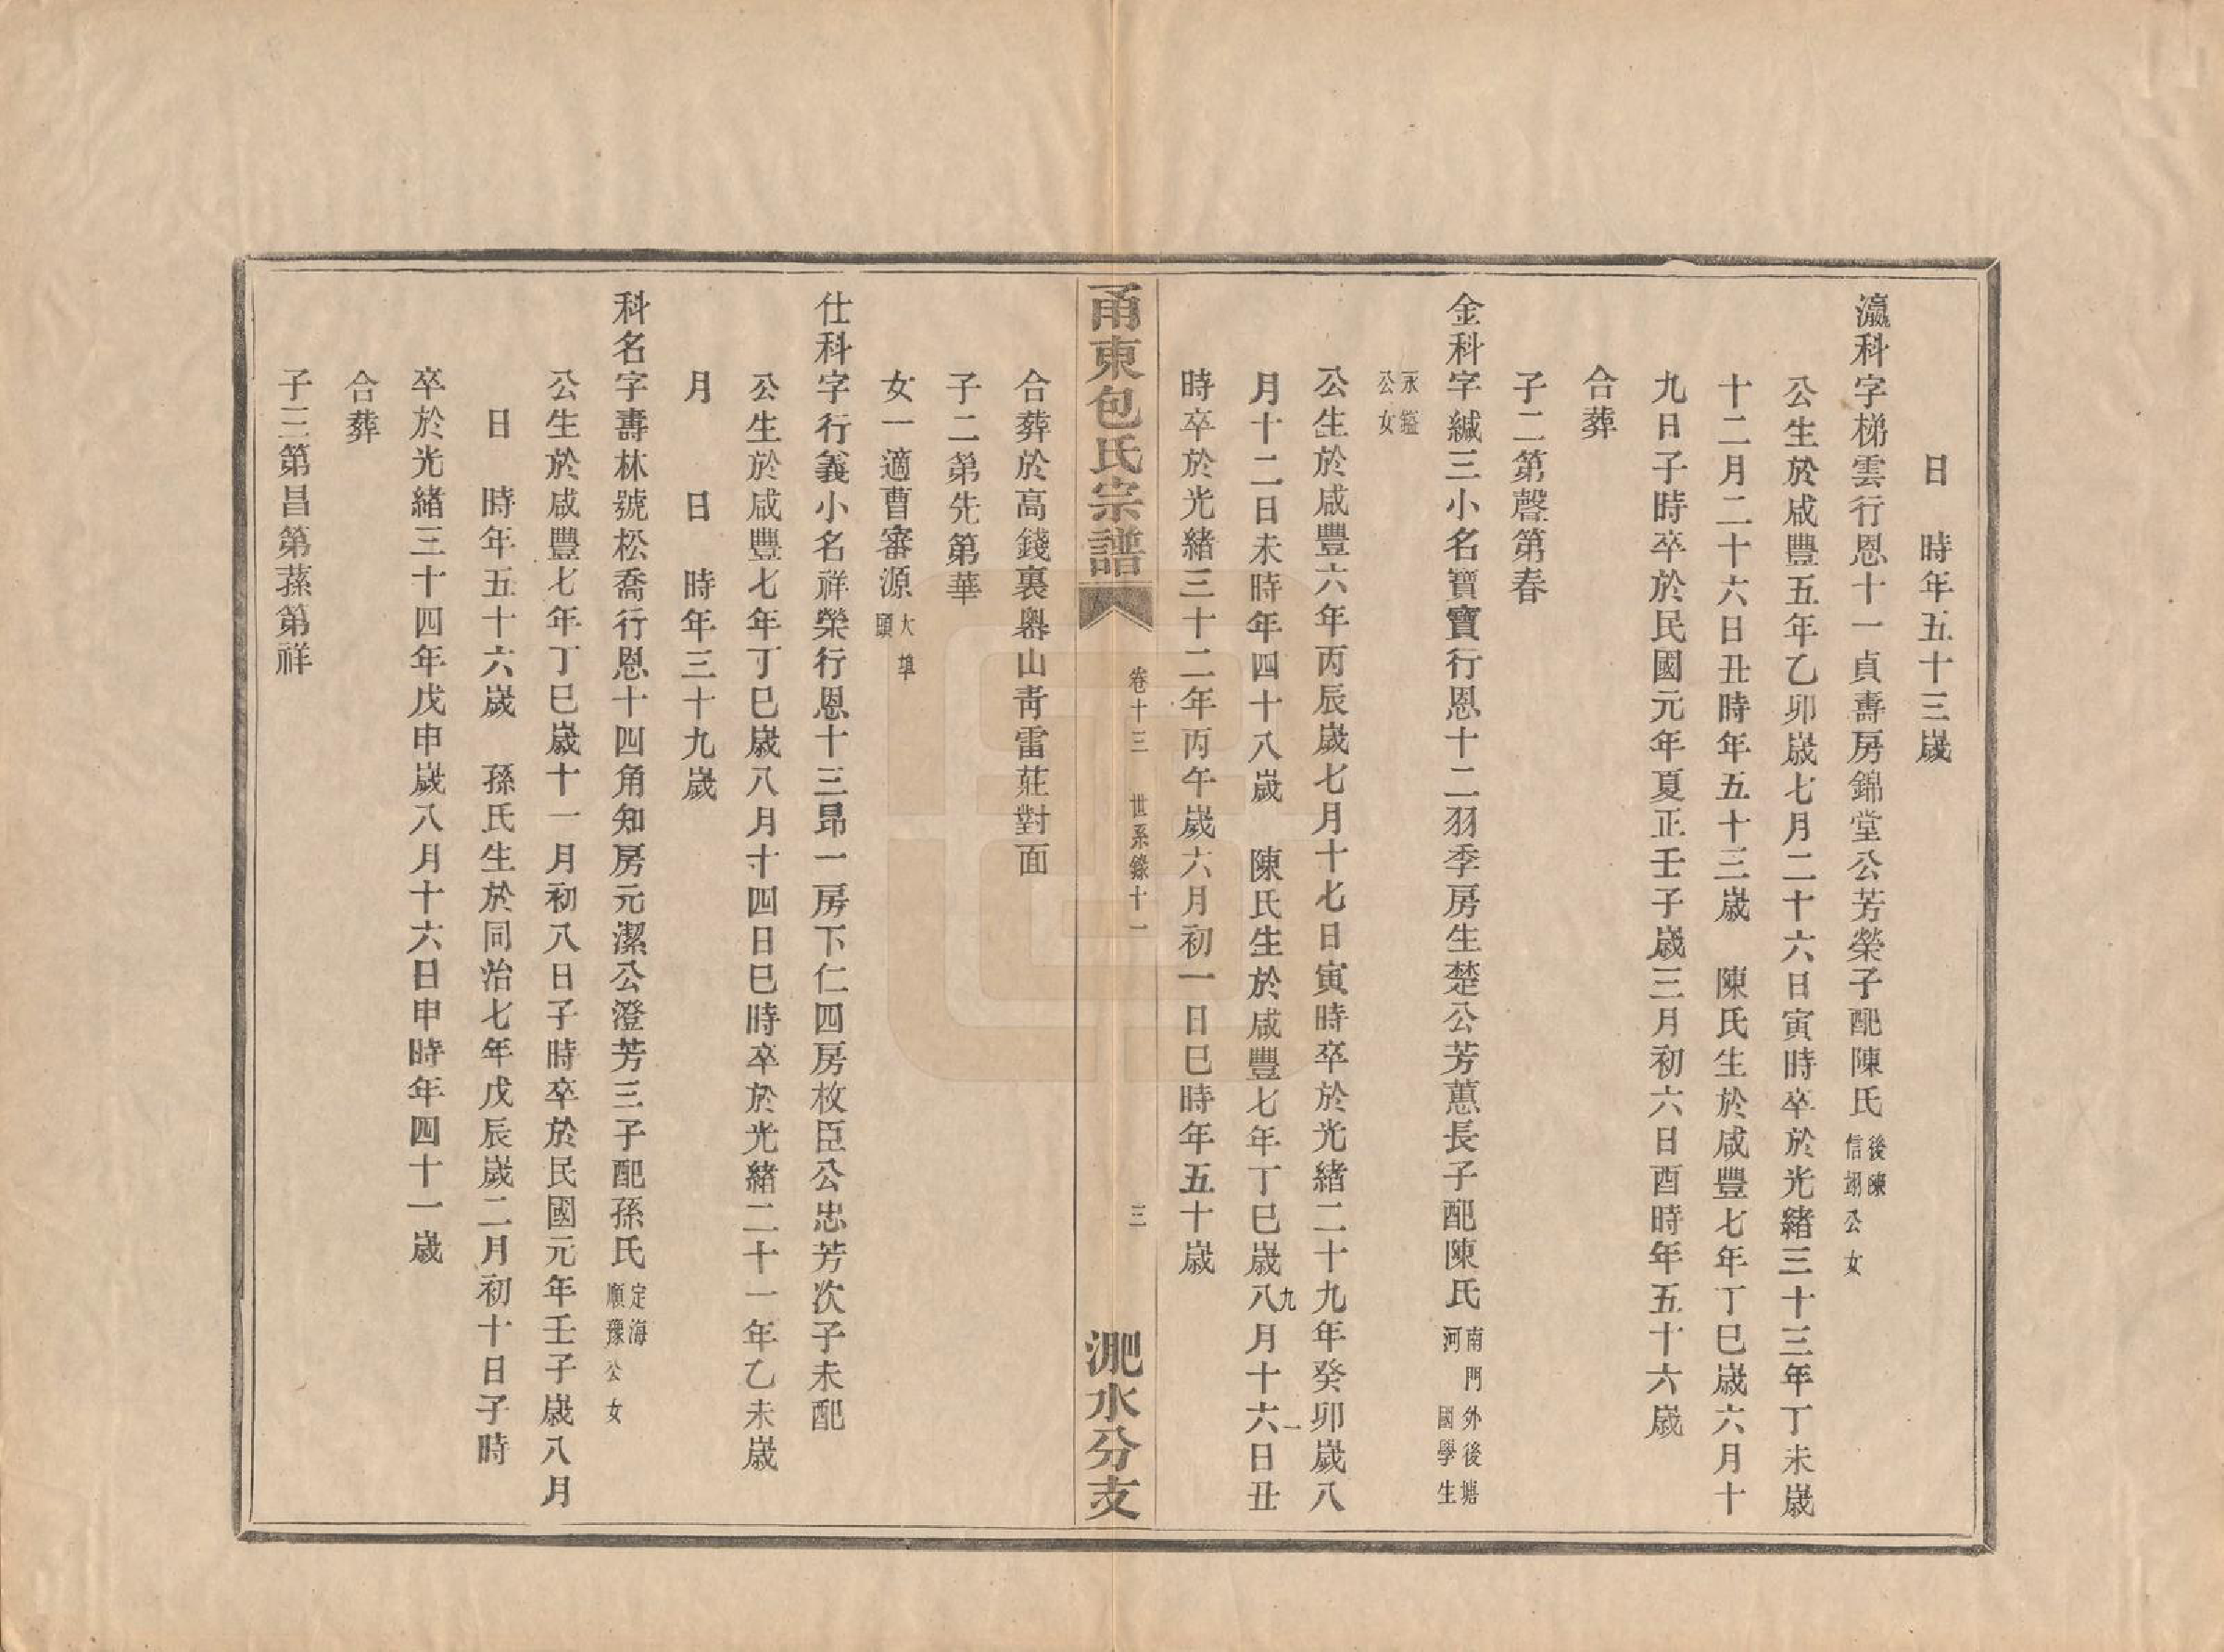 日　時年五十三歲
瀛科字梯雲行恩十一貞壽房錦堂公芳榮子配陳氏後陳信翊公女
公生於咸豐五年乙卯歲七月二十六日寅時卒於光緒三十三年丁未歲
十二月二十六日丑時年五十三歲　陳氏生於咸豐七年丁巳歲六月十
九日子時卒於民國元年夏正壬子歲三月初六日酉時年五十六歲
合葬
子二第馨第春
金科字緘三小名寶寶行恩十二羽季房生楚公芳蕙長子配陳氏南門外後塘河國學生
永鎰公女
公生於咸豐六年丙辰歲七月十七日寅時卒於光緒二十九年癸卯歲八
月十二日未時年四十八歲　陳氏生於咸豐七年丁巳歲八九月十六一日丑
時卒於光緒三十二年丙午歲六月初一日巳時年五十歲
甬東包氏宗譜　卷十三　世系錄十一　三　淝水分支
合葬於高錢裏嶴山靑雷莊對面
子二第先第華
女一適曹審源大埠頭
仕科字行義小名祥榮行恩十三昂一房下仁四房枚臣公忠芳次子未配
公生於咸豐七年丁巳歲八月十四日巳時卒於光緒二十一年乙未歲
月　日　時年三十九歲
科名字壽林號松喬行恩十四角知房元潔公澄芳三子配孫氏定海順豫公女
公生於咸豐七年丁巳歲十一月初八日子時卒於民國元年壬子歲八月
日　時年五十六歲　孫氏生於同治七年戊辰歲二月初十日子時
卒於光緒三十四年戊申歲八月十六日申時年四十一歲
合葬
子三第昌第蓀第祥